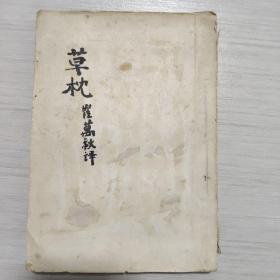 草枕
崔萬秋譯